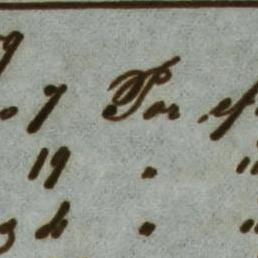 9
o 7 Por ef
19 "  "
3 4 "  "